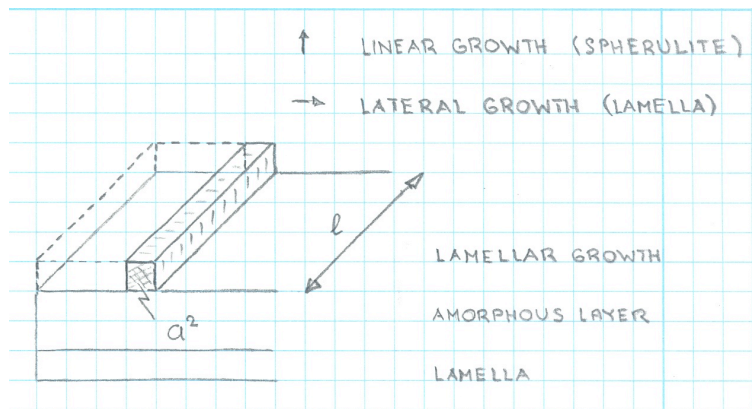 ↑ LINEAR GROWTH (SPHERULITE)
→ LATERAL GROWTH (LAMELLA)
l
LAMELLAR GROWTH
a²
AMORPHOUS LAYER
LAMELLA